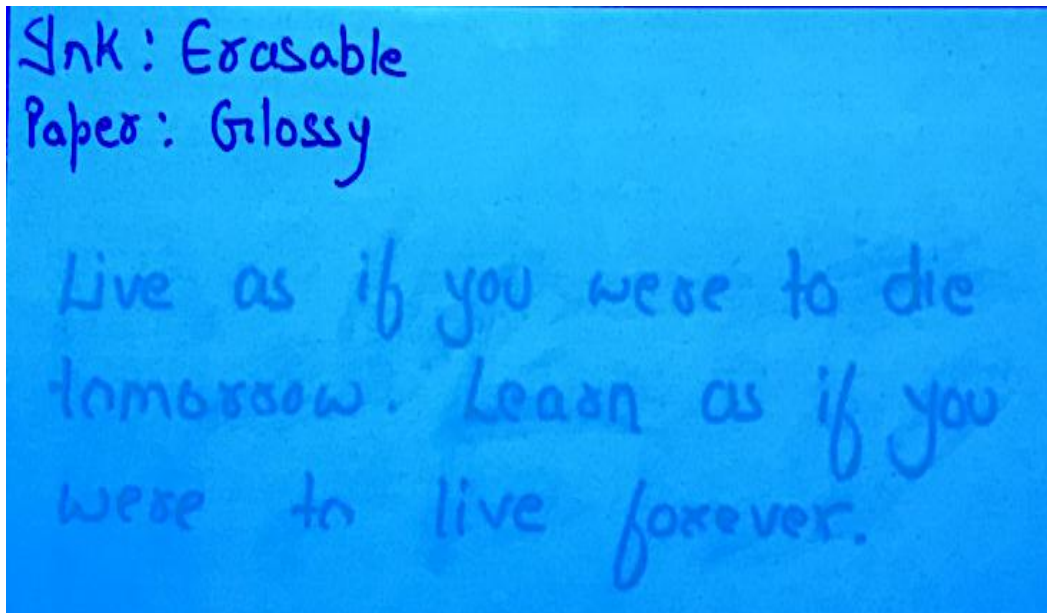 Ink: Erasable
Paper: Glossy
Live as if you were to die
tomorrow. Learn as if you
were to live forever.